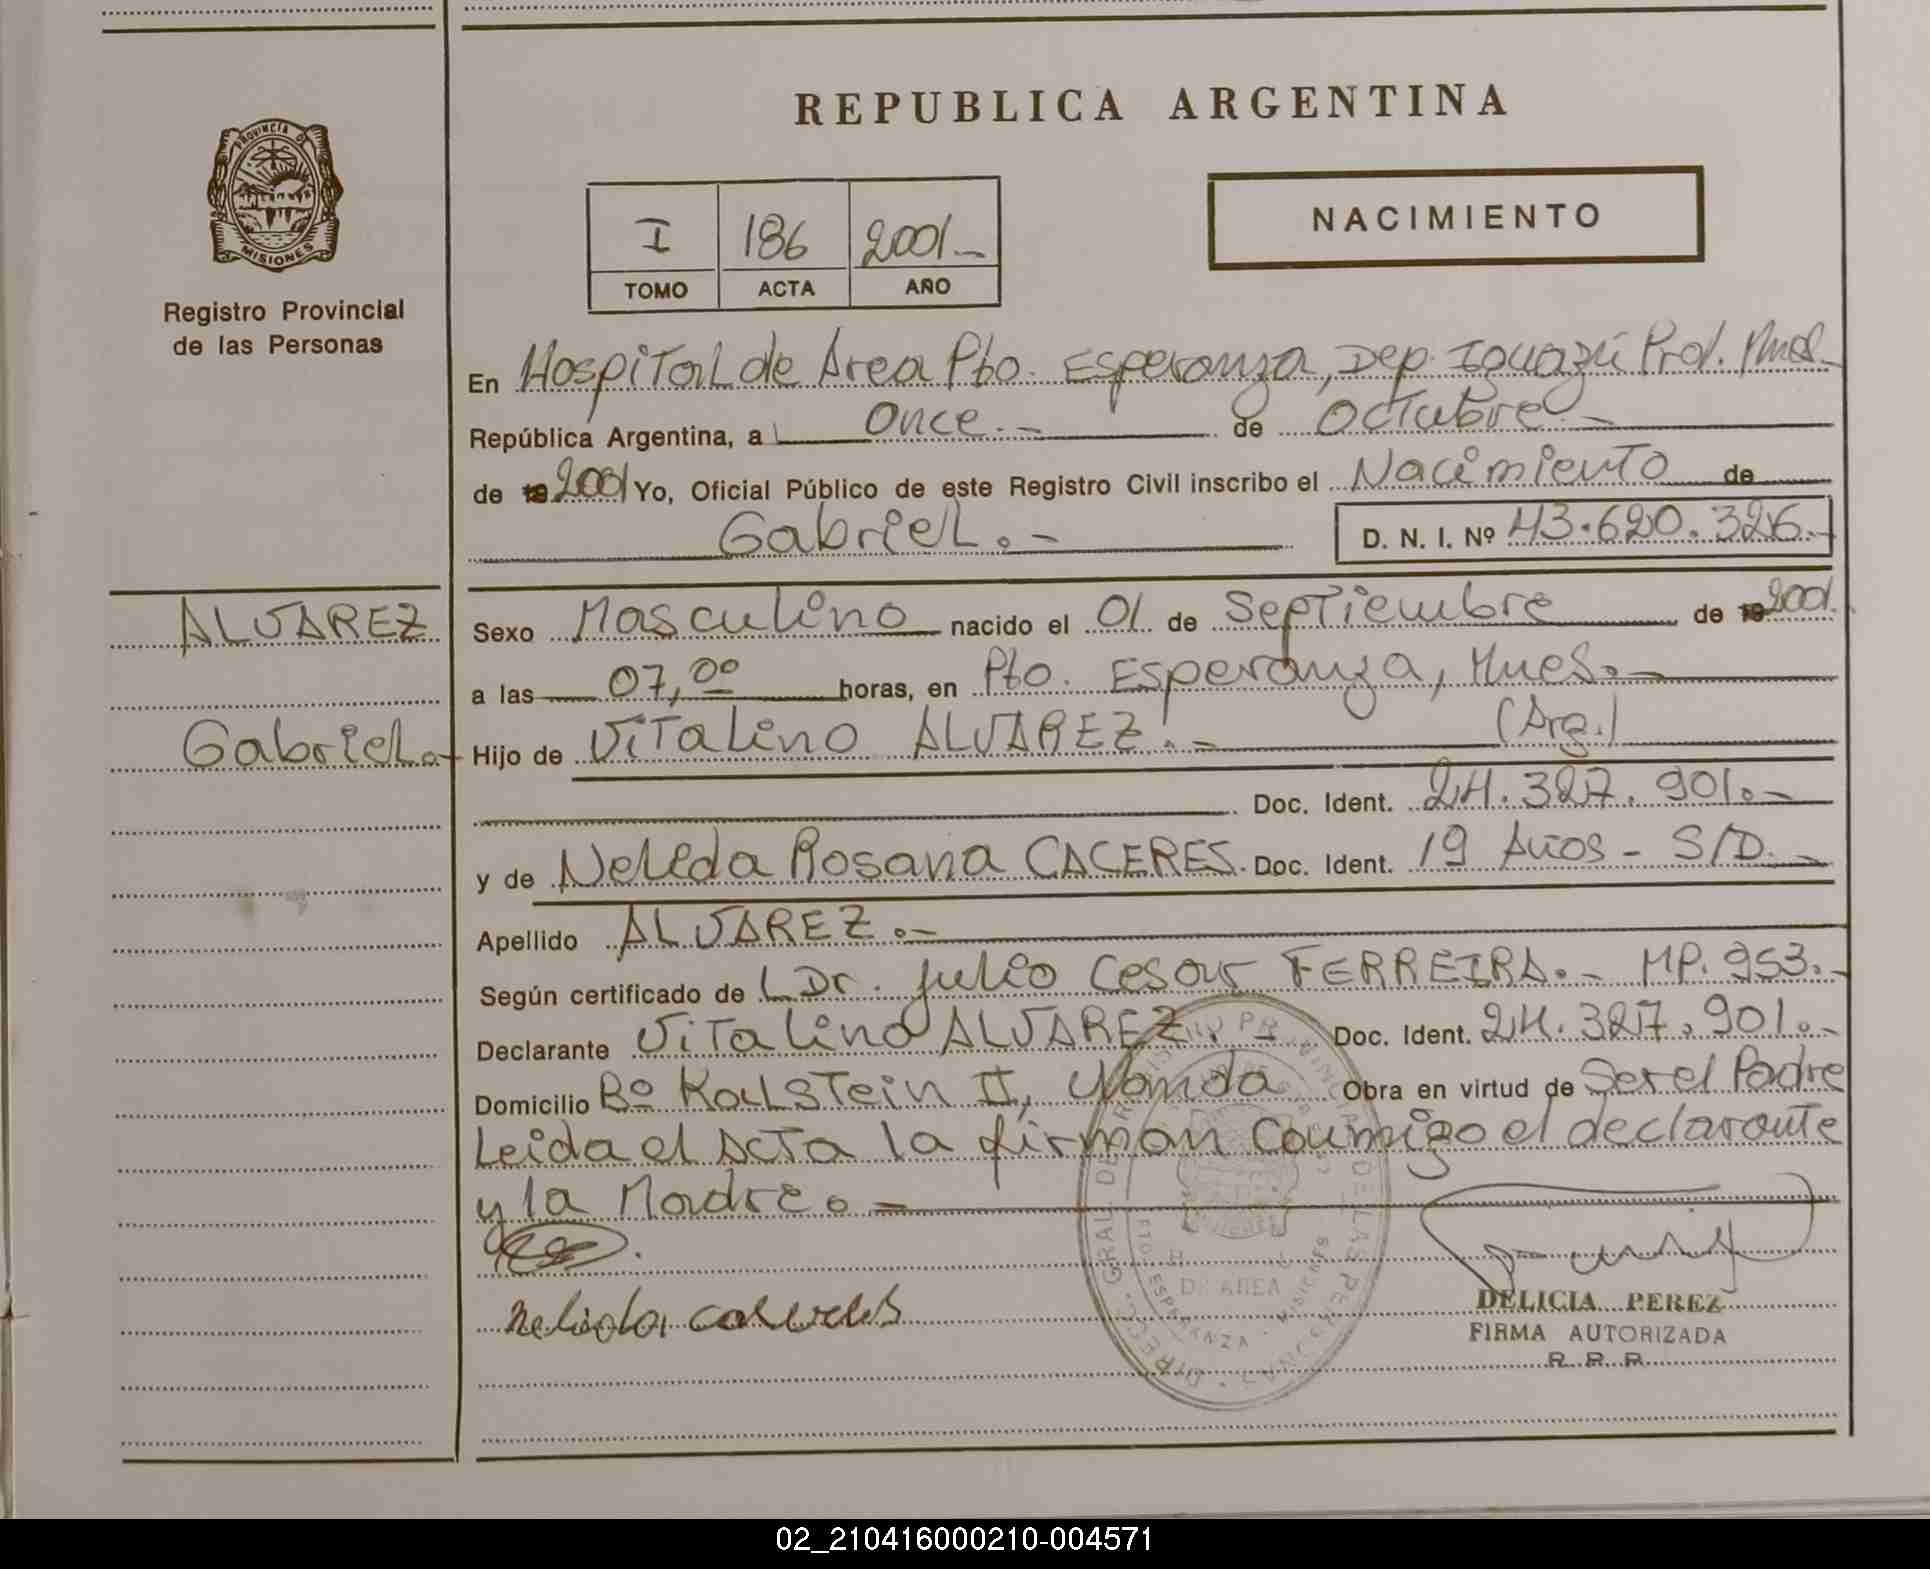 REPUBLICA ARGENTINA
PROVINCIA DE
MISIONES
Registro Provincial
de las Personas
NACIMIENTO
I 186 2001.-
TOMO ACTA AÑO
En Hospital de Area Pto. Esperanza, Dep. Iguazú Prov. Mnes.-
República Argentina, a once.- de octubre.-
de 19 2001 Yo, Oficial Público de este Registro Civil inscribo el Nacimiento de
Gabriel.- D. N. I. Nº 43.620.326.-
ALVAREZ
Gabriel.-
Sexo Masculino nacido el 01 de Septiembre de 19 2001.
a las 07,00 horas, en Pto. Esperanza, Mnes.-
Hijo de Vitalino ALVAREZ.- (Arg.)
Doc. Ident. 24.327.901.-
y de Nelida Rosana CACERES. Doc. Ident. 19 Años - S/D.-
Apellido ALVAREZ.-
Según certificado de L Dr. Julio Cesar FERREIRA.- MP. 953.-
Declarante Vitalino ALVAREZ.- Doc. Ident. 24.327.901.-
Domicilio Bº Kalstein II, Wanda Obra en virtud de Ser el Padre
Leida el Acta la firman conmigo el declarante
y la Madre.-
DELICIA PEREZ
FIRMA AUTORIZADA
R. P. P.
02_210416000210-004571